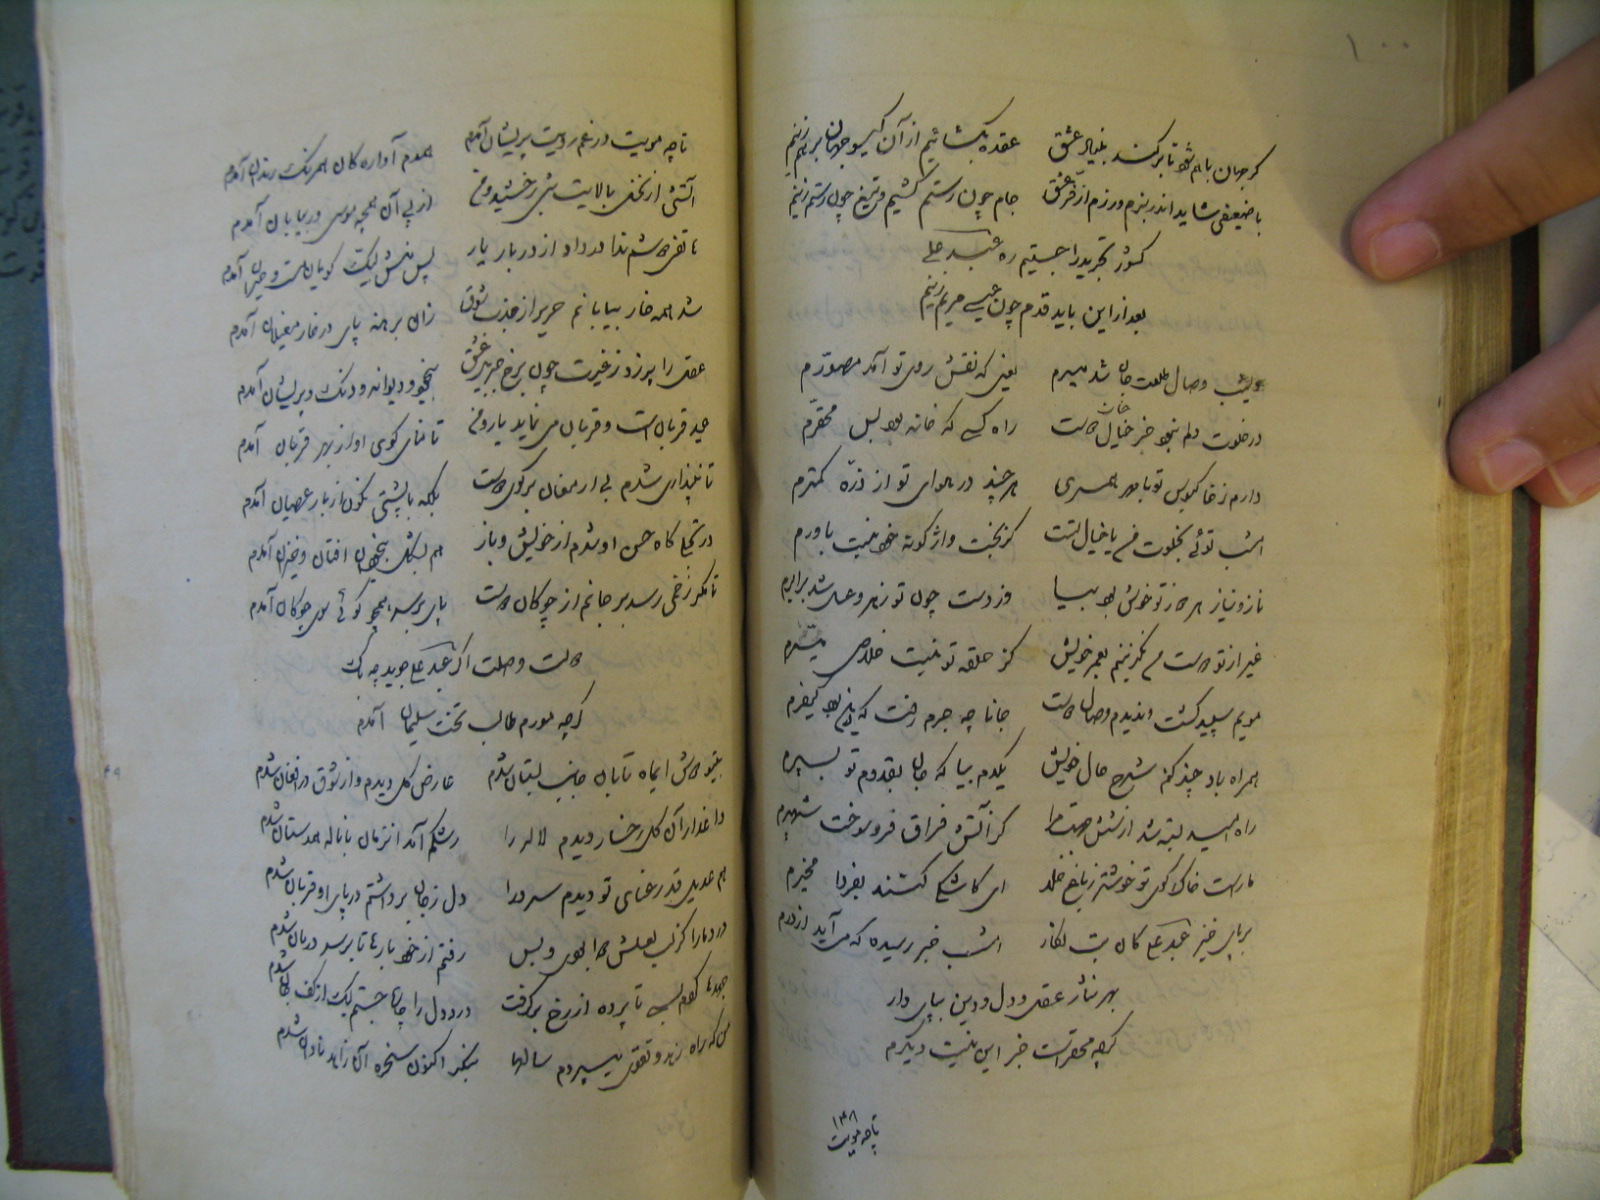 ۱۰۰
گر جهان با هم شود تا برکند بنیاد عشق عقده بگشائیم از آن گیسو جهان بر هم زنیم
با ضعیفی شاید اندر بزم و رزم از فر عشق جام چون رستم کشیم و تیغ چون رستم زنیم
کشور تجرید را جستیم ره عبد علی
بعد از این باید قدم چون عیسی مریم زنیم
وصال طلعت جان شد میسرم یعنی که نقش روی تو آمد مصورم
در خلوت دلم بجز خیالت راه کسی که خانه بود بس محقرم
دارم ز خاکبوس تو با مهر همسری هر چند در هوای تو از ذره کمترم
امشب توئی بخلوت من یا خیال تست کز بخت واژگونه خود نیست باورم
ناز و نیاز هر دو ز تو خوش بود بیا
غیر از تو دوست می نگزینم بعمر خویش کز حلقه تو نیست خلاصی میسرم
مویم سپید گشت و ندیدم وصال دوست جانا چه جرم رفت که این بود کیفرم
همراه باد چند کنم شرح حال خویش یکدم بیا که جان بقدوم تو بسپرم
راه امید بسته شد از شش جهت مرا کز آتش فراق فرو سوخت شهپرم
ما راست خاک کوی تو خوشتر ز باغ خلد ای کاش کشند بفردا مخیرم
بر پای خیز عبد علی کان بت نگار امشب خبر رسیده که می آید از درم
بهر نثار عقل و دل و دین بپای دار
گرچه محقر است جز این نیست دیگرم
۱۴۸
تا چه مویت
تا چه مویت در غم رویت پریشان آمدم همدم آواره گان همرنگ رندان آمدم
آتشی از نخل بالایت شبی رخشید و من از پی آن همچو موسی در بیابان آمدم
هاتفی دوشم ندا در داد از دربار یار پس منش لبیک گویان مست و حیران آمدم
شد همه خار بیابانم حریر از جذب شوق زان برهنه پای در خار مغیلان آمدم
عقل را پر زد ز غیرت چون برخ جبریل عشق بیخود و دیوانه و دنگ و پریشان آمدم
عید قربان است و قربان می نماید یار و من تا منای کوی او از بهر قربان آمدم
تا نپنداری شدم بی ارمغان بر کوی دوست بلکه با پشتی نگون از بار عصیان آمدم
در تجلی گاه حسن او شدم از خویش و باز هم بشکل بیخودان افتان و خیزان آمدم
تا مگر زخمی رسد بر جانم از چوگان دوست پای بر سر همچو گوئی سوی چوگان آمدم
دولت وصلت اگر عبد علی جوید چه باک
گرچه مورم طالب تخت سلیمان آمدم
بیتو دوش ایماه تابان جانب بستان شدم عارض گل دیدم و از شوق در افغان شدم
داغدار آن گل رخسار دیدم لاله را رشکم آمد آنزمان با ناله همدستان شدم
هم عدیل قد رعنای تو دیدم سرو را دل ز جان برداشتم در پای او قربان شدم
درد ما را کز لب لعلش دوا بودی و بس رفتم از خود بارها تا بر سر درمان شدم
جهدها کردم بسی تا پرده از رخ برگرفت درد دل را چارها جستم لیک از کف شدم
من که راه زهد و تقوی میسپردم سالها بنگر اکنون سخره آن زاهد نادان شدم
۴۹